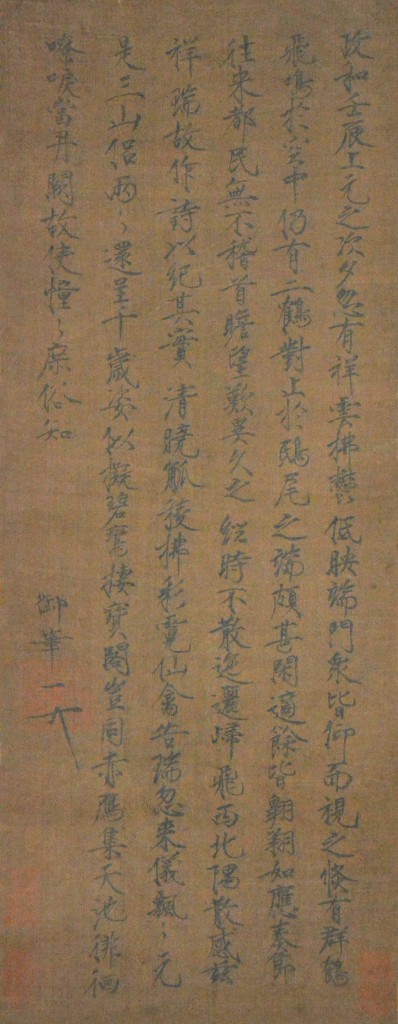 政和壬辰上元之次夕忽有祥雲拂鬱低映端門衆皆仰而視之倏有群鶴
飛鳴於空中仍有二鶴對止於鴟尾之端頗甚閑適餘皆翱翔如應奏節
往來都民無不稽首瞻望歎異久之經時不散迤邐歸飛西北隅散感茲
祥瑞故作詩以紀其實 清曉觚稜拂彩霓仙禽告瑞忽來儀飄々元
是三山侶兩々還呈千歲姿似擬碧鸞棲寶閣豈同赤鴈集天池徘徊
嘹唳當丹闕故使憧々庶俗知
御筆